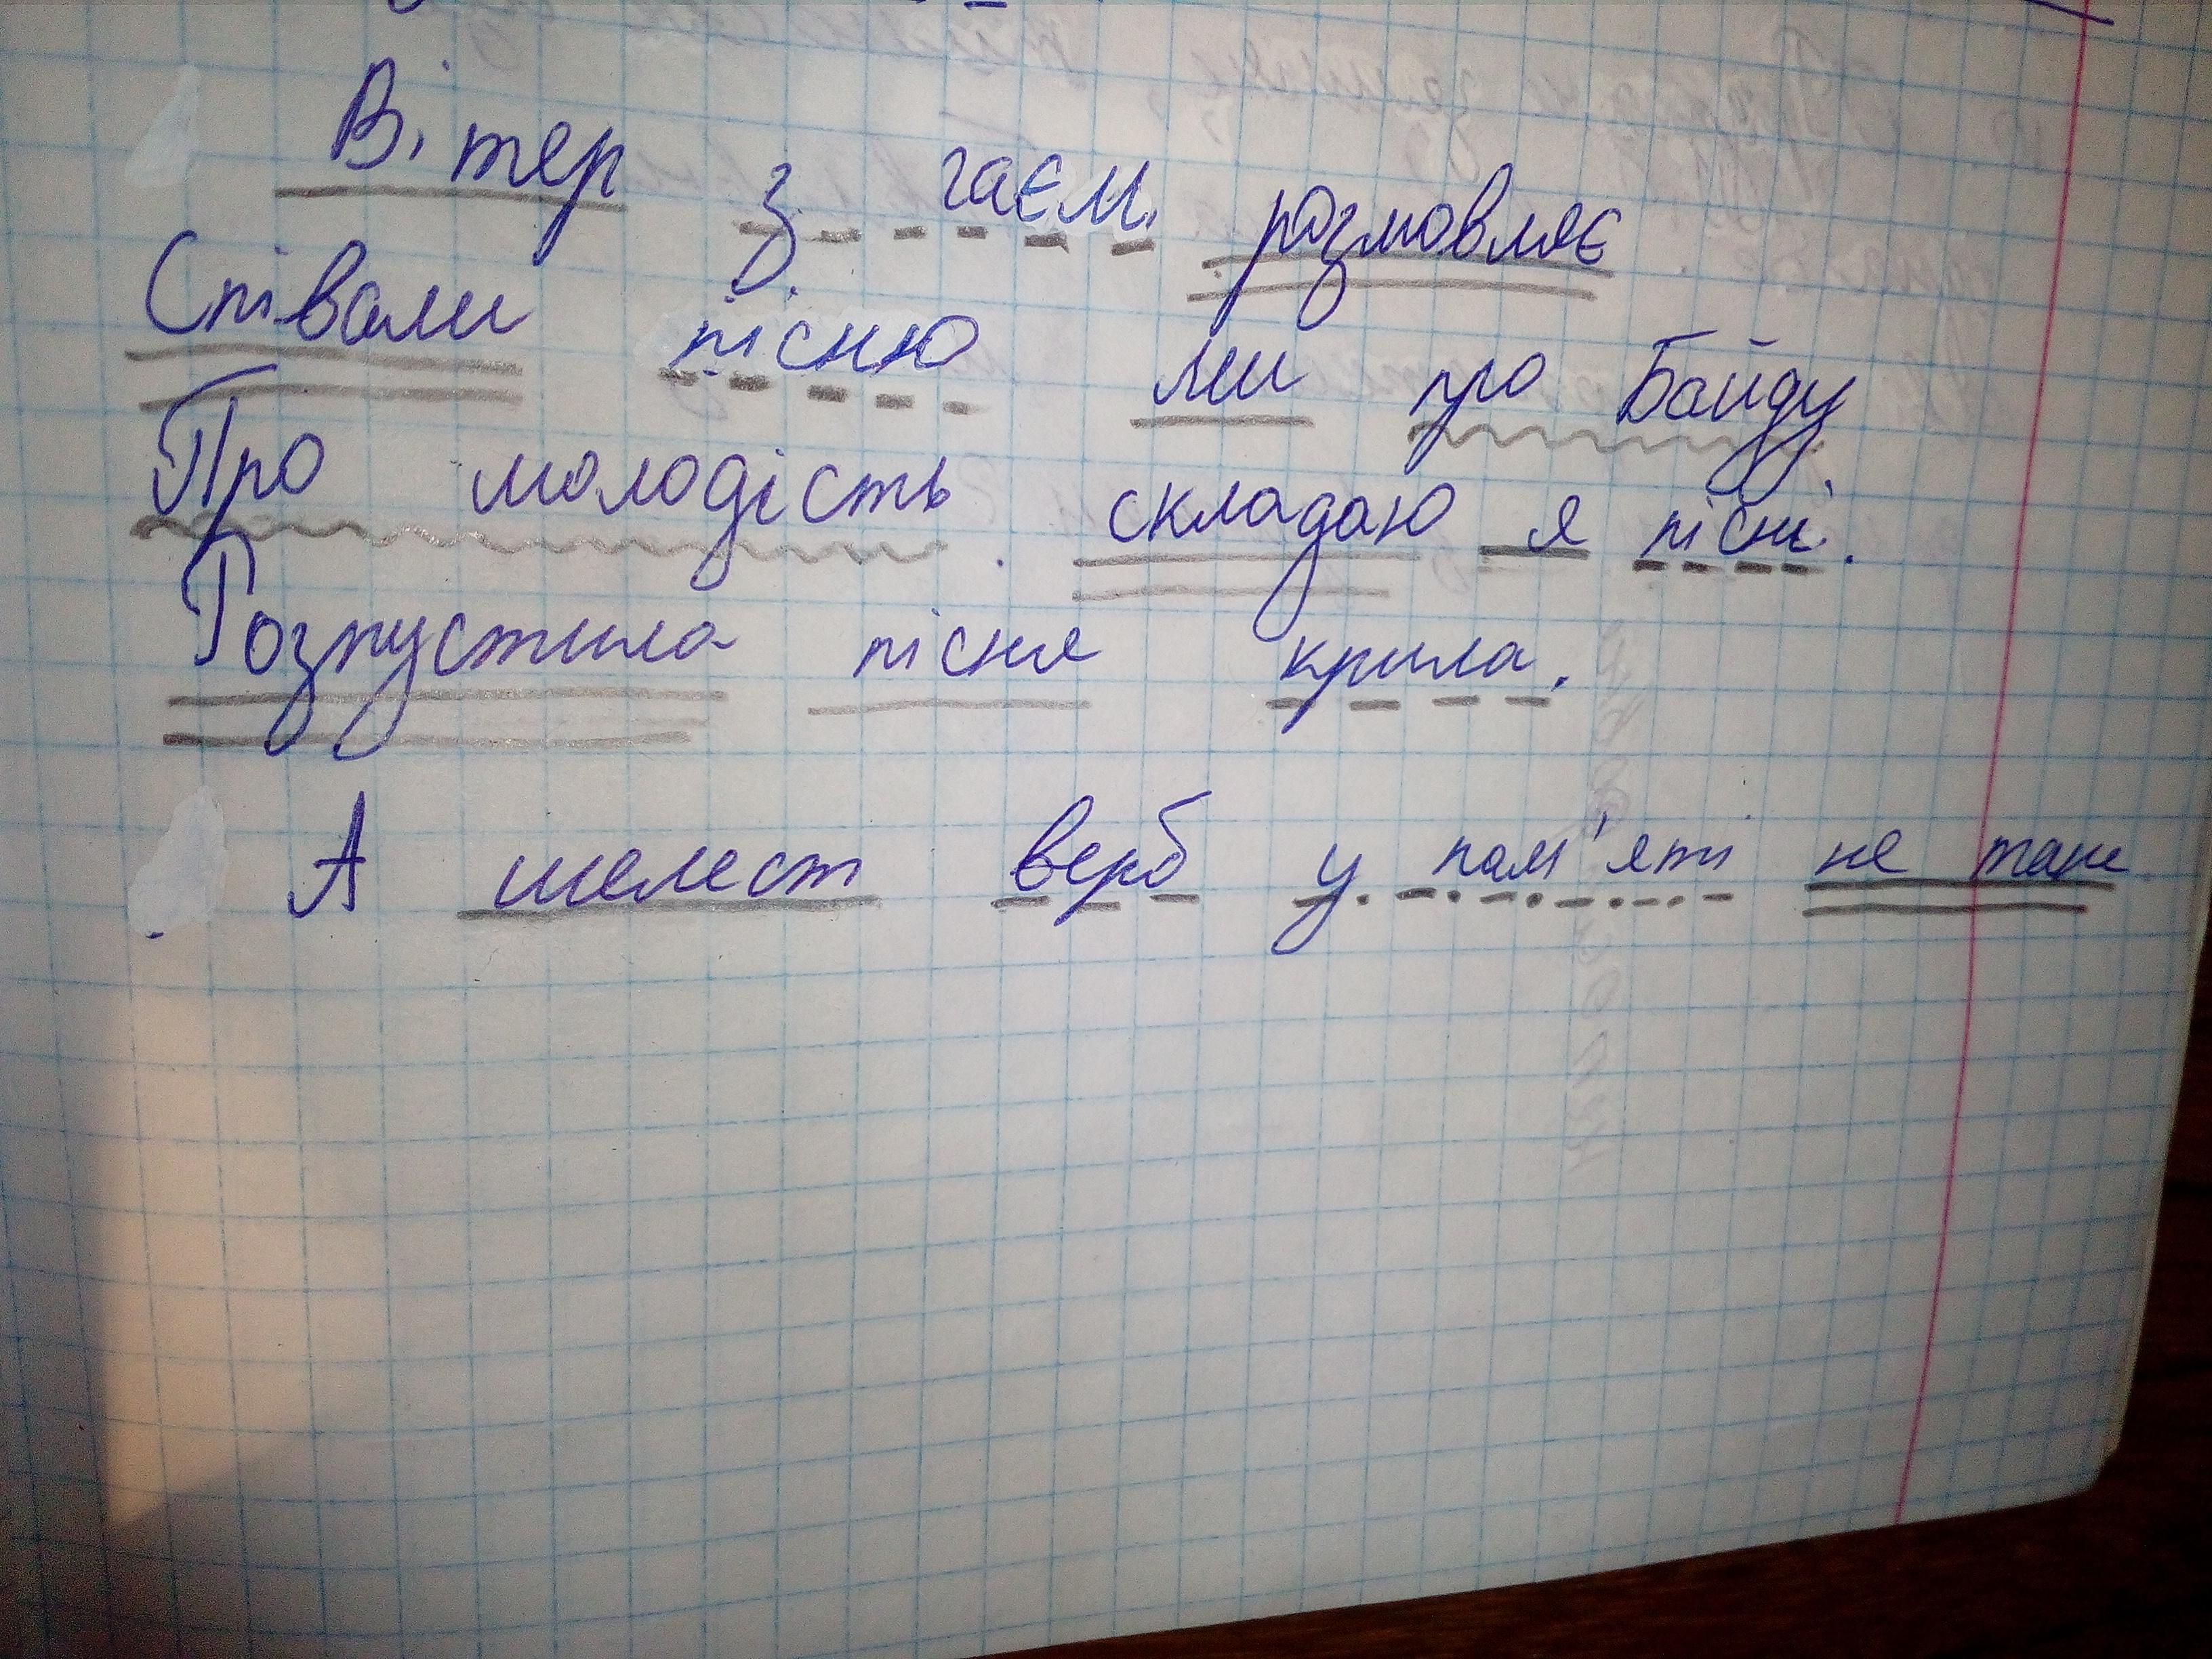 Вітер з гаєм розмовляє
Співали пісню ми про Байду.
Про молодість складаю я пісні.
Розпустила пісня крила.
А шелест верб у пам'яті не тане